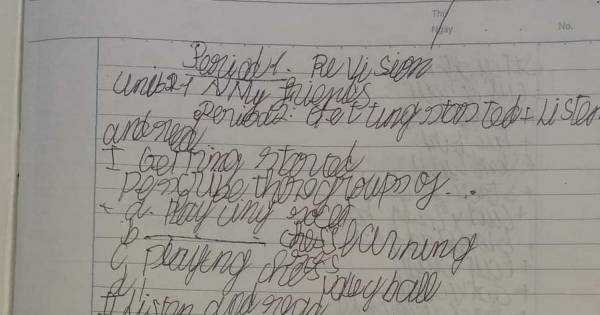 Thứ
Ngày No.
Period 1: Revision
Unit 2: My friends
Period 2: Getting started + Listen
and read
I Getting started
these groups of...
a. Playing
b. learning
c, playing chess
d, volleyball
II Listen and read